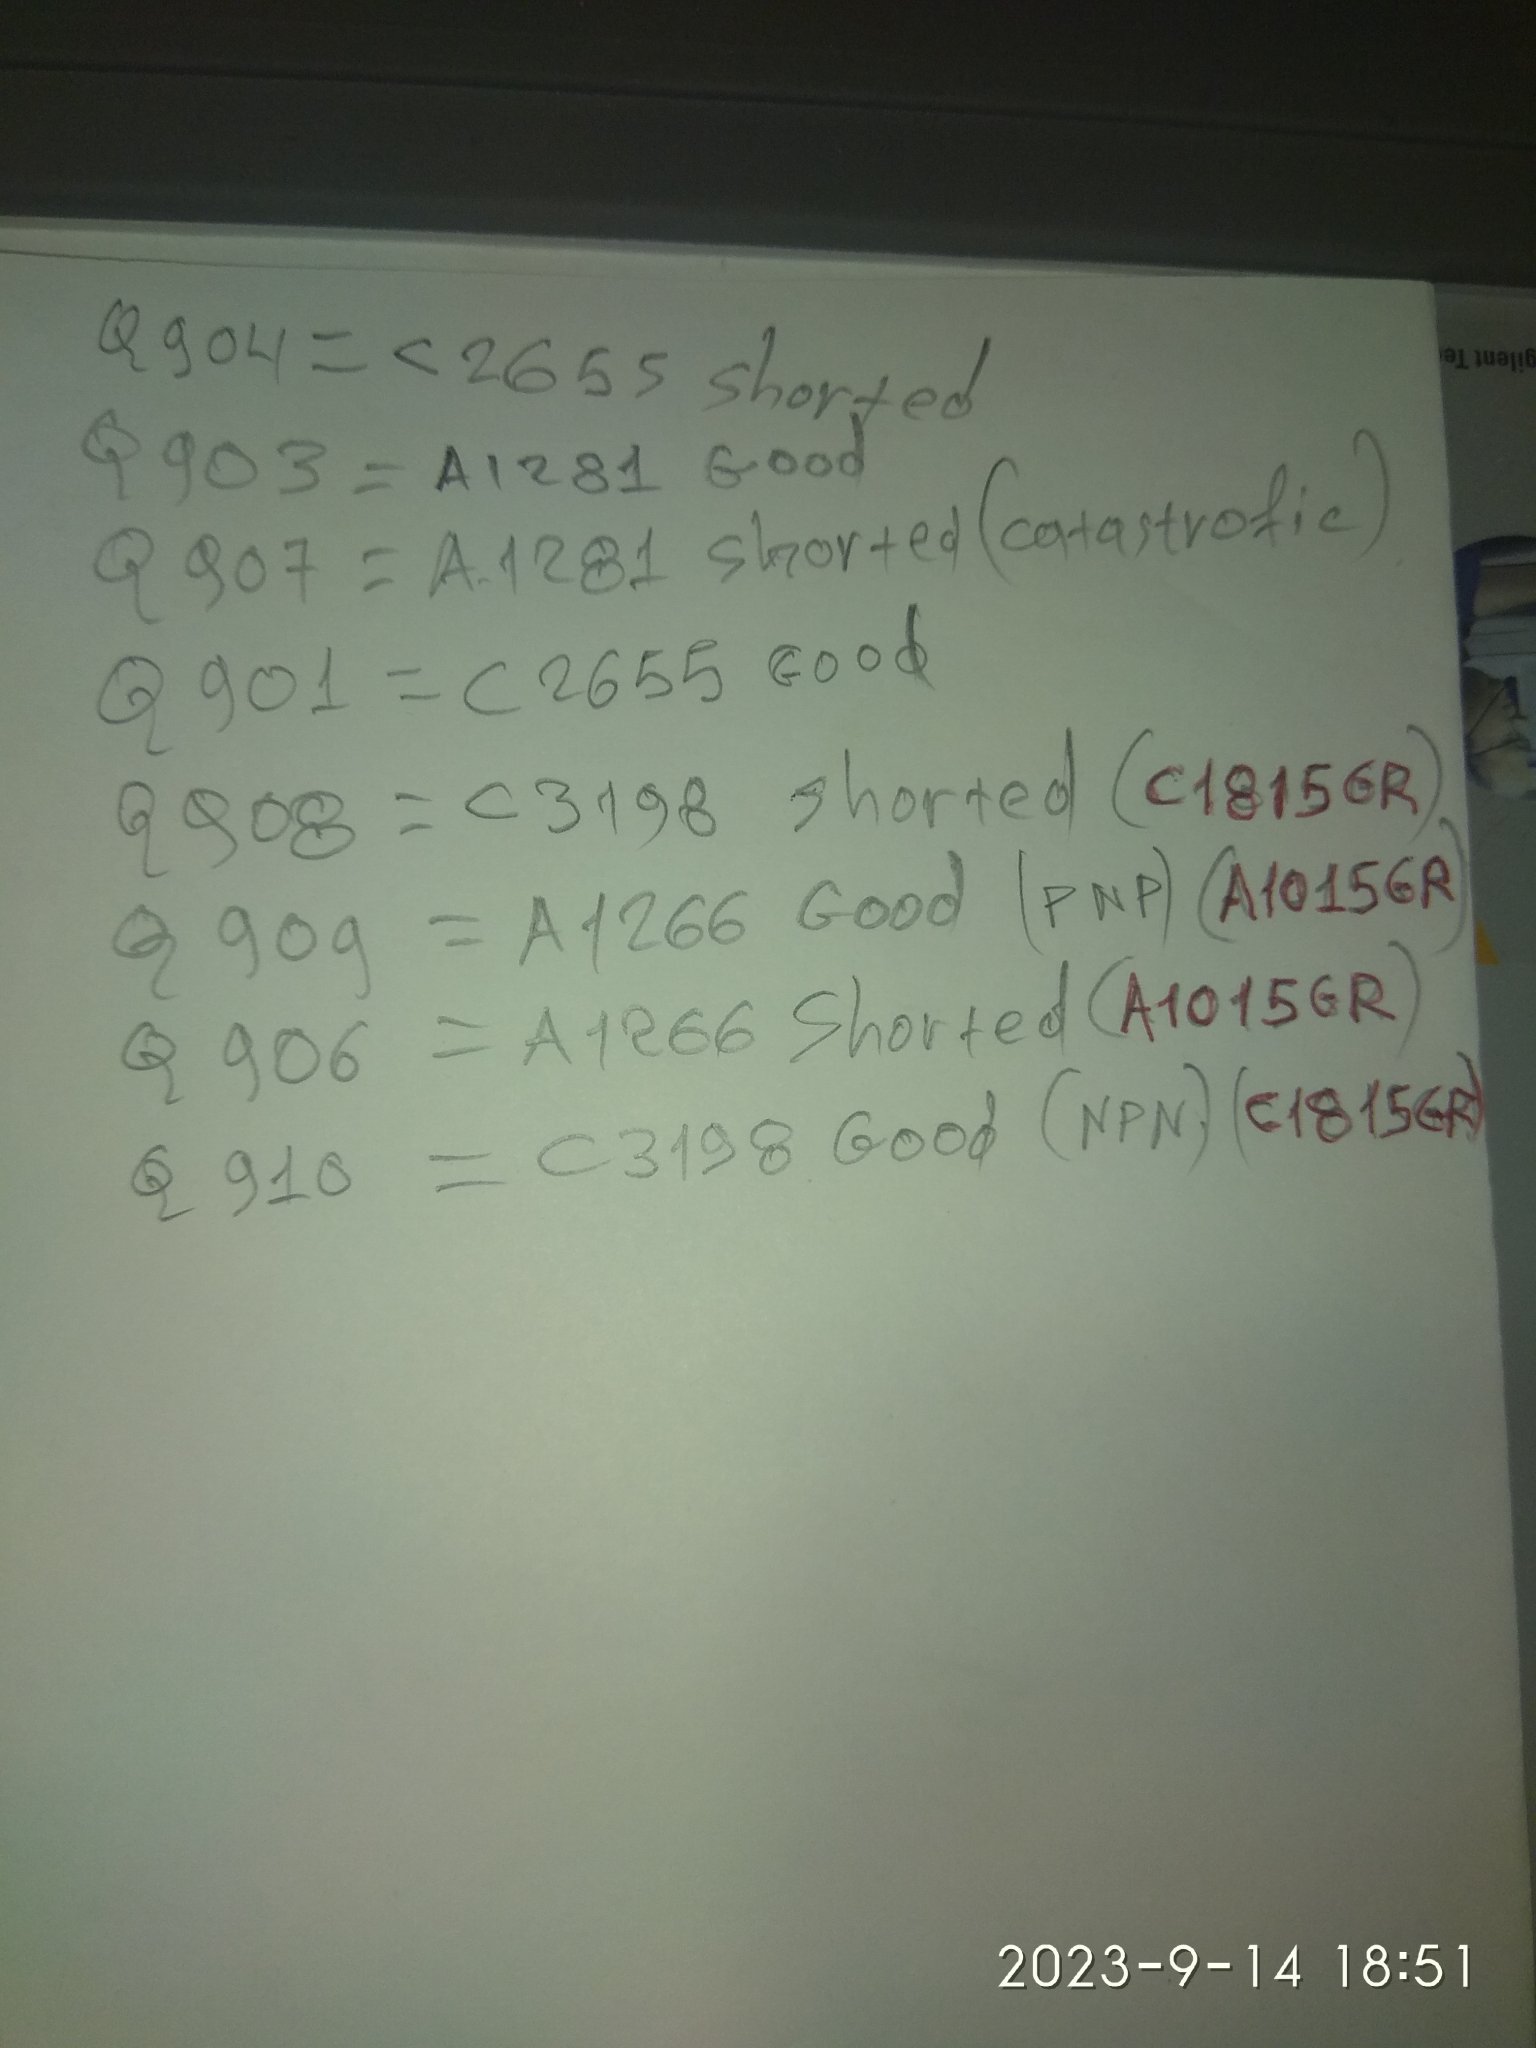 Q904 = C2655 shorted
Q903 = A1281 Good
Q907 = A.1281 shorted (catastrofic)
Q901 = C2655 Good
Q908 = C3198 shorted (C1815GR)
Q909 = A1266 Good (PNP) (A1015GR)
Q906 = A1266 Shorted (A1015GR)
Q910 = C3198 Good (NPN) (C1815GR)
gilent Te
2023-9-14 18:51